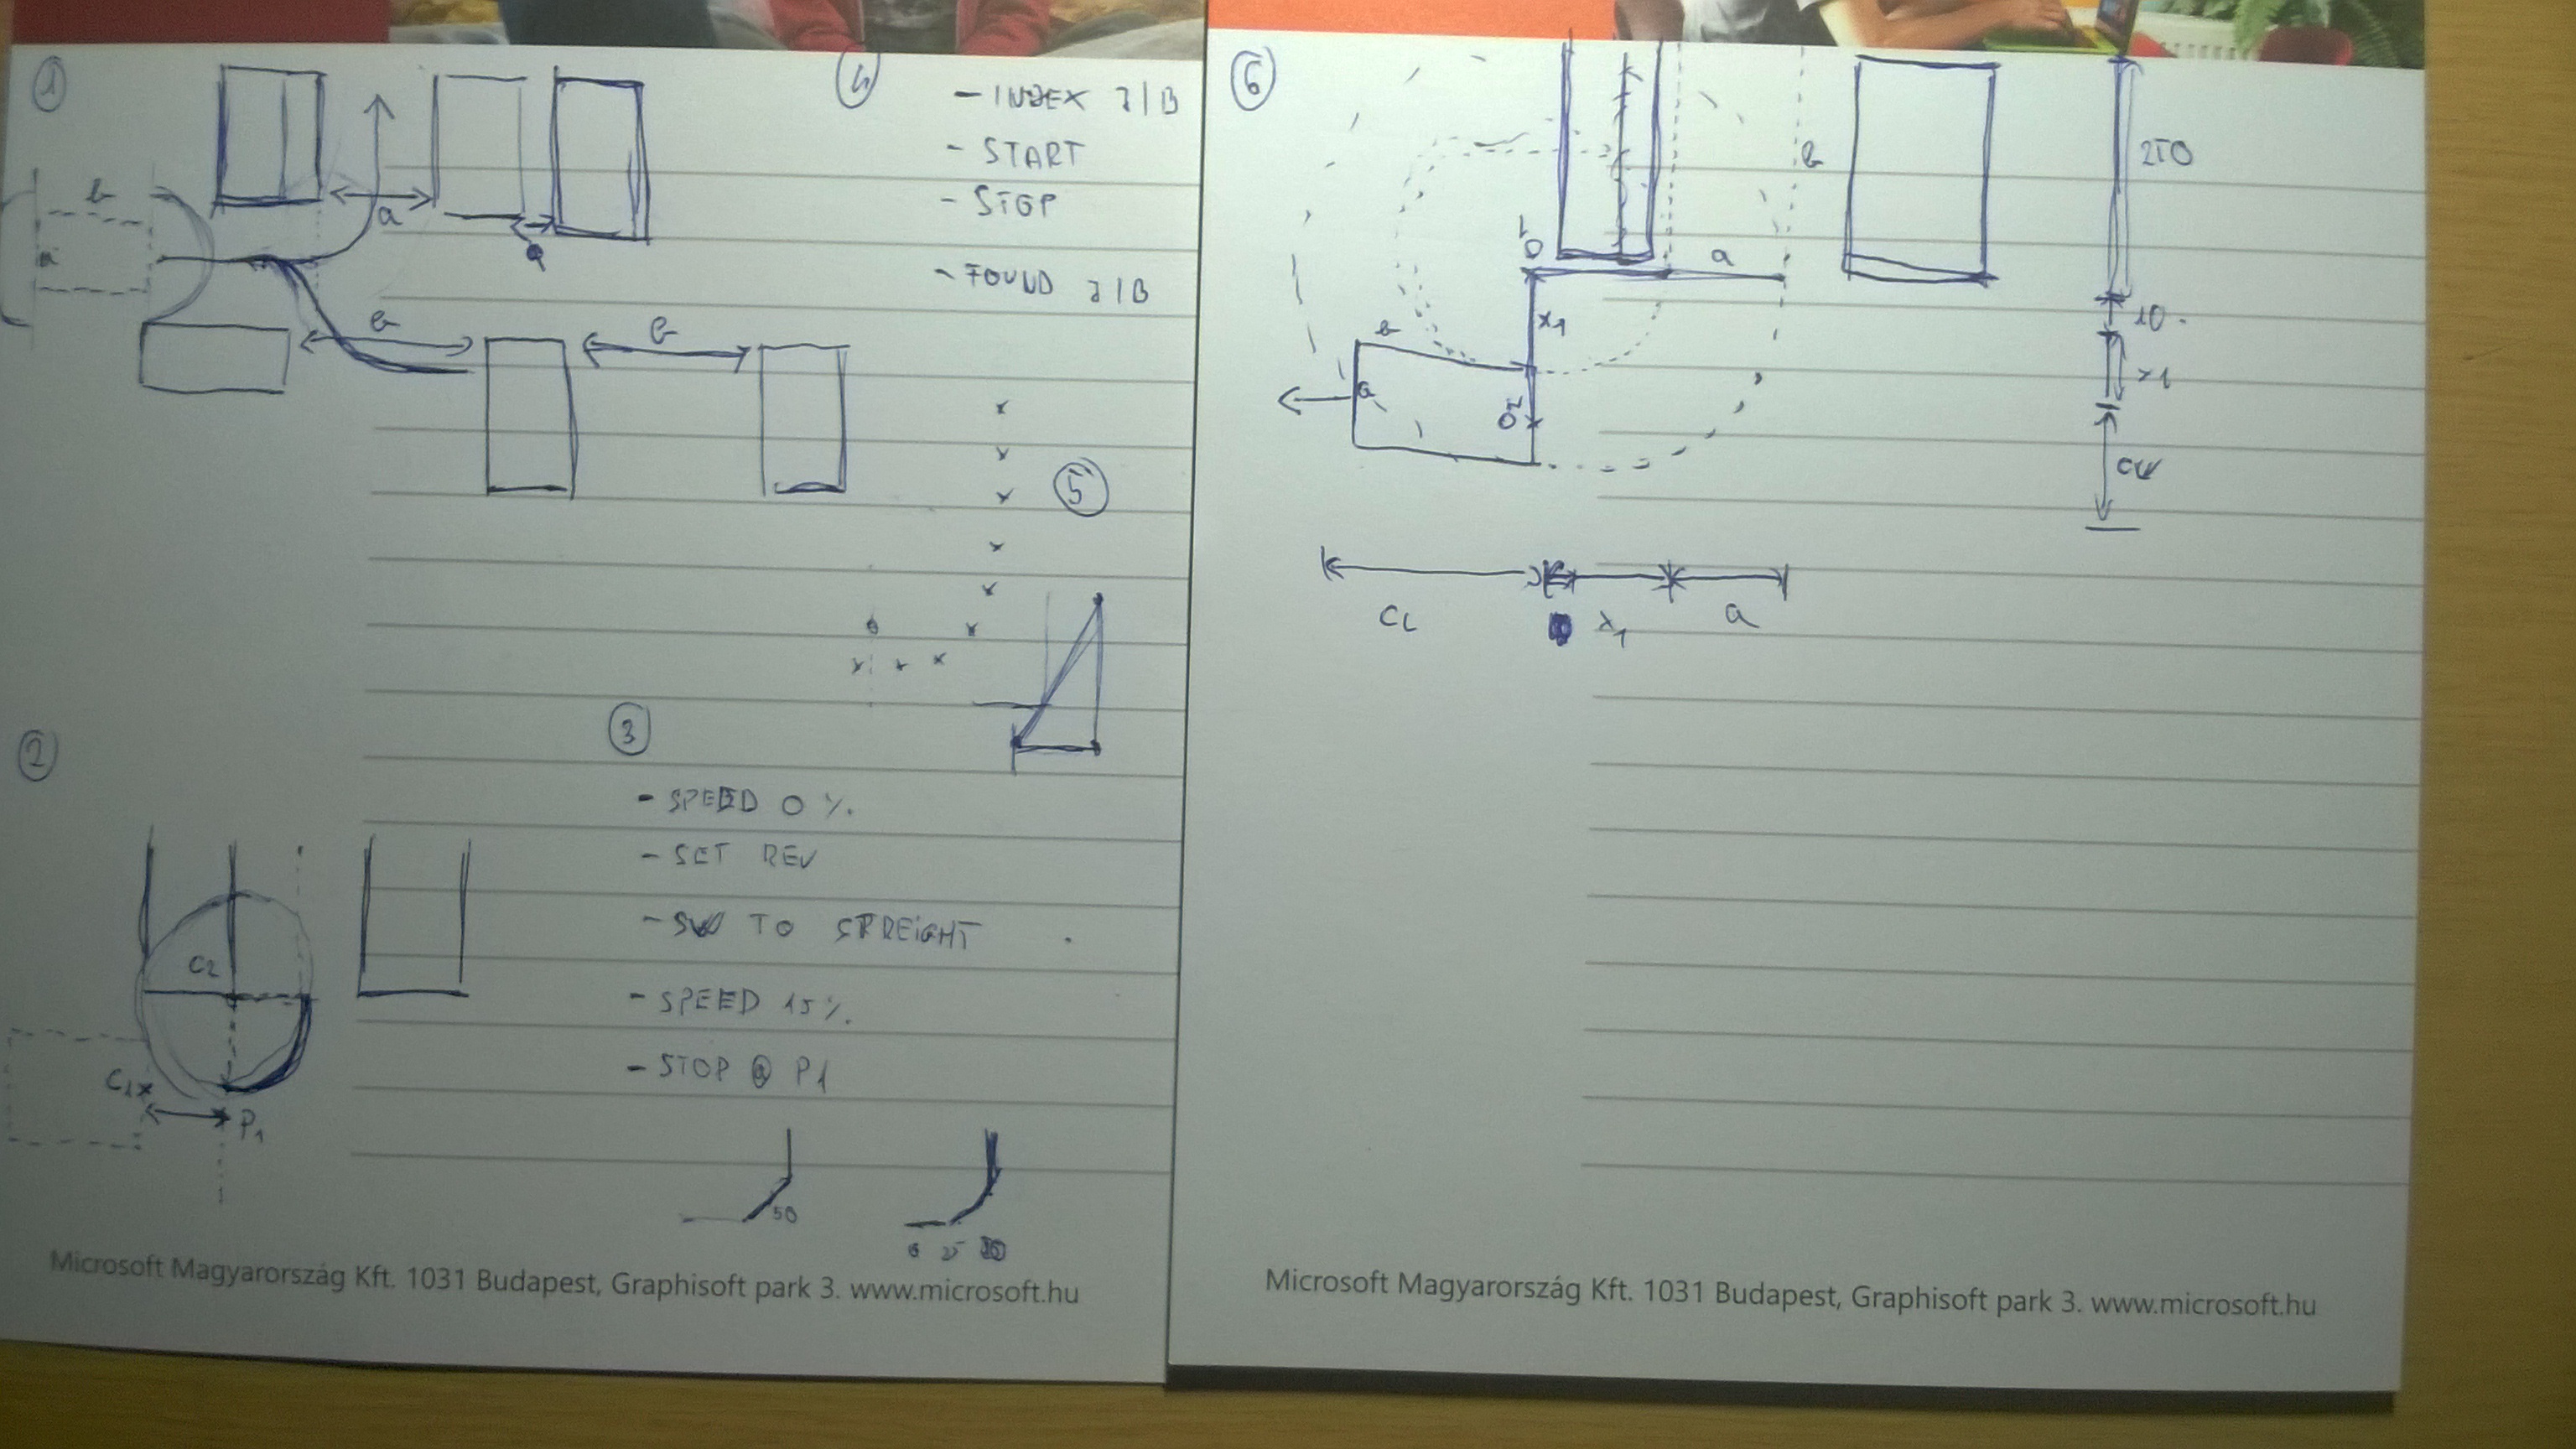 1
b
a
a
a
b
b
4
- INDEX J/B
- START
- STOP
- FOUND J/B
5
2
C2
C1x
P1
3
- SPEED 0 %.
- SET REV
- SW TO STREIGHT
- SPEED 15 %.
- STOP @ P1
50
Microsoft Magyarország Kft. 1031 Budapest, Graphisoft park 3. www.microsoft.hu
6
b
O1
a
x1
b
a
O2
10
x1
CW
CL
x1
a
Microsoft Magyarország Kft. 1031 Budapest, Graphisoft park 3. www.microsoft.hu